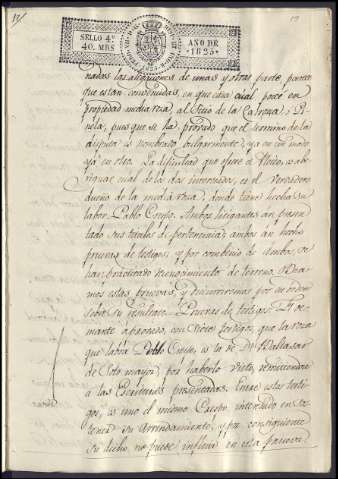 SELLO 4º
40. MRS
AÑO DE
1825
nadas las alegaciones de unas y otras parte, parece
que estan convenidas, en que cada cual posee en
propiedad media roza, al Sitio de la
pues que se ha probado que el termino de la
disputa es nombrado vulgarmente, ya en un modo
ya en otro. La dificultad que ofrece el Pleito, es abe-
riguar cual de las dos interesadas, es el verdadero
dueño de la media roza, donde tiene hecha su
labor Pablo Crespo. Ambos litigantes an presen-
tado sus titulos de pertenencia; ambos an hecho
pruebas de testigos, y por convenio de ambos, se
han practicado reconocimiento de terreno.
estas pruebas, y discurriremos por su orden
sobre su resultado. Pruevas de testigos. El de-
mante absoenso, con siete testigos, que la roza
que labra Pablo Crespo, es la de Dn. Baltasar
de Soto mayor, por haberlo visto, remitiendose
a las Escrituras presentadas. Entre estos testi-
gos, es uno el mismo Crespo interesado en sos-
tener su arrendamiento, y por consiguiente
su dicho, no puede influir en esta